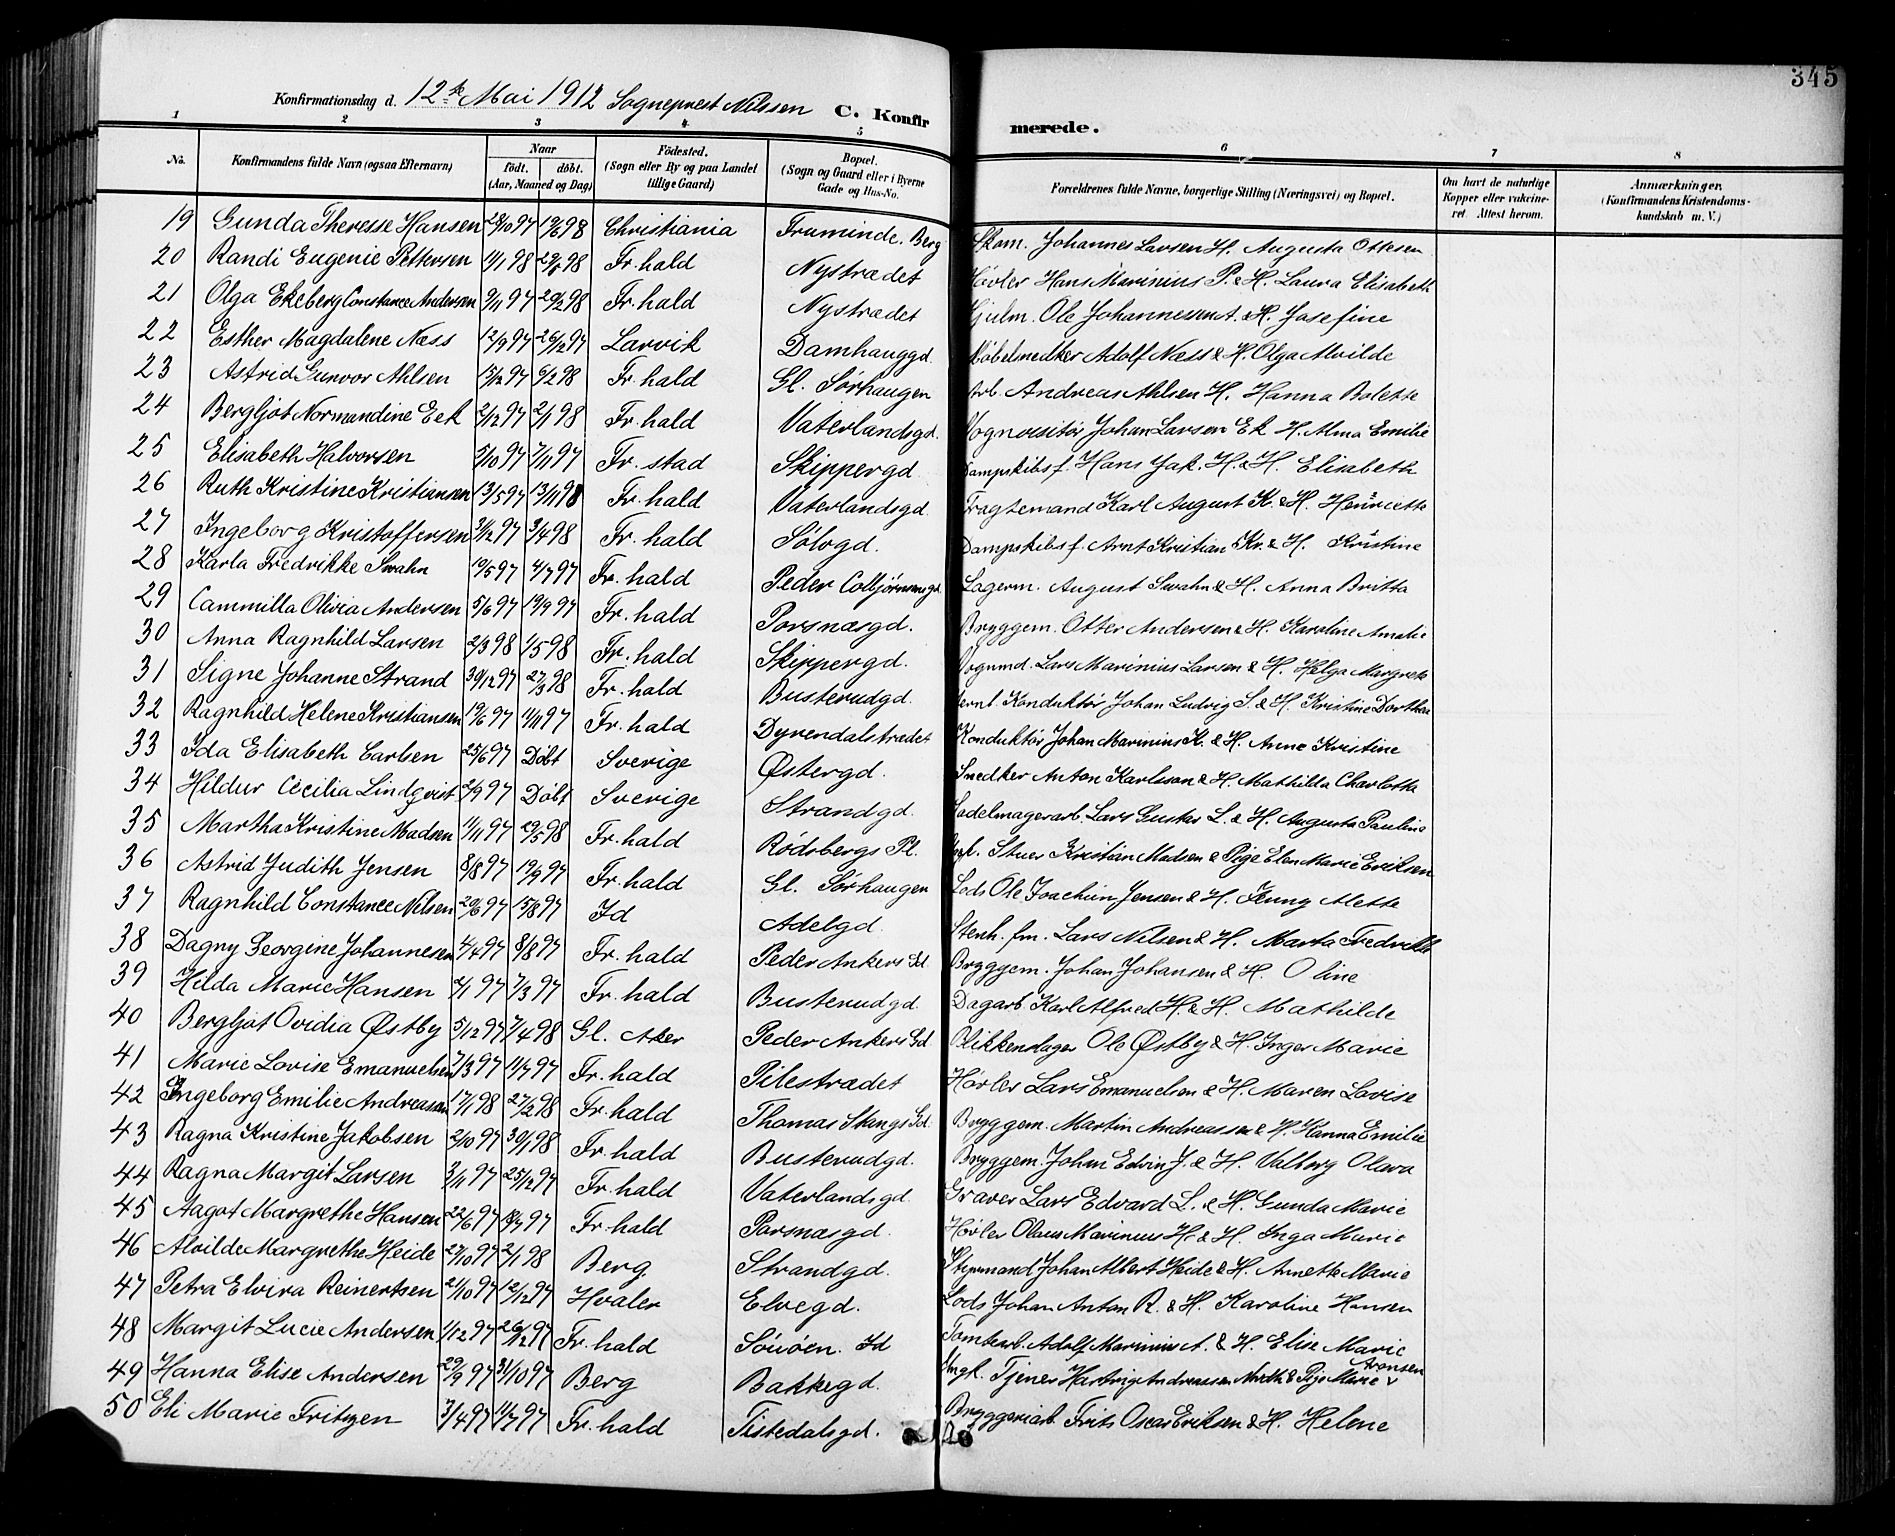 345
Konfirmationsdag d. 12te Mai 1912 Sogneprest Nilssen C. Konfirmerede.
1 2 3 4 5 6 7 8
No. Konfirmandens fulde Navn (ogsaa Efternavn) Naar født. døbt. (Aar, Maaned og Dag) Födested. (Sogn eller By og paa Landet tillige Gaard) Bopæl. (Sogn og Gaard eller i Byerne Gade og Hus-No. Forældrenes fulde Navne, borgerlige Stilling (Næringsvei) og Bopæl. Om havt de naturlige Kopper eller vakcineret. Attest herom. Anmærkninger. (Konfirmandens Kristendomskundskab m. V.)
19 Gunda Theresse Hansen 28/10 97 98 Christiania Berg Skom. Johannes Larsen H. Augusta Ottesen
20 Randi Eugenie Pettersen 11/1 98 98 Fr. hald Nystrædet Høvler Hans Marinius P. & H. Laura Elisabeth
21 Olga Ekeberg Constance Andersen 9/11 97 20/2 98 Fr. hald Nystrædet Ole Johannessen A. & H. Josefine
22 Esther Magdalene Næss 12/9 97 26/12 97 Larvik Damhauggd. Møbelsnedker Adolf Næss & H. Olga Alvilde
23 Astrid Gunvor Ahlsen 15/12 97 6/2 98 Fr. hald Gl. Sørhaugen Arb. Andreas Ahlsen H. Hanna Bolette
24 Bergljot Normandine Eek 2/12 97 2/1 98 Fr. hald Vaterlandsgd. Johan Larsen Ek H. Alma Emilie
25 Elisabeth Halvorsen 5/10 97 7/11 97 Fr. stad Skippergd. Dampskibsf. Hans Jak. H. & H. Elisabeth
26 Ruth Kristine Kristiansen 13/5 97 13/11 98 Fr. hald Vaterlandsgd. Fragtemand Karl August K. & H. Henriette
27 Ingeborg Kristoffersen 31/12 97 3/4 98 Fr. hald Sølvgd. Dampskibsf. Arnt Kristian Kr. & H. Kristine
28 Karla Fredrikke Swahn 19/5 97 4/7 97 Fr. hald Peder Colbjørnsensgd. Lagerm. August Swahn & H. Anna Britta
29 Cammilla Olivia Andersen 5/6 97 19/9 97 Fr. hald Porsnæsgd. Bryggem. Otter Andersen & H. Karoline Amalie
30 Anna Ragnhild Larsen 2/3 98 1/5 98 Fr. hald Skippergd. Vognmd. Lars Marinius Larsen & H. Helga Margrete
31 Signe Johanne Strand 30/12 97 27/3 98 Fr. hald Busterudgd. Jernb. Konduktør Johan Ludvig S. & H. Kristine Dorthea
32 Ragnhild Helene Kristiansen 19/6 97 11/11 97 Fr. hald Dyrendalstrædet Konduktør Johan Marinius K. & H. Anne Kristine
33 Ida Elisabeth Carlsen 25/6 97 Døbt Sverige Østergd. Snedker Anton Karlsson & H. Mathilda Charlotta
34 Hildur Cecilia Lindqvist 2/9 97 Døbt Sverige Strandgd. Sadelmagerarb. Lars Gustav L. & H. Augusta Pauline
35 Martha Kristine Madsen 11/11 97 29/5 98 Fr. hald Rødsbergs Pl. Ungk. Stuer Kristian Madsen & Pige Elen Marie Eriksen
36 Astrid Judith Jensen 8/8 97 19/9 97 Fr. hald Gl. Sørhaugen Lods Ole Joachim Jensen & H. Jenny Mette
37 Ragnhild Constance Nilsen 20/6 97 15/8 97 Id Adelgd. Stenh. fm. Lars Nilsen & H. Marta Fredrikke
38 Dagny Georgine Johannesen 4/4 97 8/8 97 Fr. hald Peder Ankers Gd. Bryggem. Johan Johansen & H. Oline
39 Hilda Marie Hansen 2/1 97 7/3 97 Fr. hald Busterudgd. Dagarb. Karl Alfred H. & H. Mathilde
40 Bergljot Ovidia Østby 5/12 97 7/4 98 Gl. Aker Peder Ankers Gd. Blikkenslager Ole Østby & H. Inger Marie
41 Marie Lovise Emanuelsen 7/3 97 11/7 97 Fr. hald Pilestrædet Høvler Lars Emanuelsen & H. Maren Lovise
42 Ingeborg Emilie Andreassen 17/1 98 27/2 98 Fr. hald Thomas Stangs Gd. Bryggem. Martin Andreassen & H. Hanna Emilie
43 Ragna Kristine Jakobsen 2/10 97 30/1 98 Fr. hald Busterudgd. Bryggem. Johan Edvin J. & H. Valborg Olava
44 Ragna Margit Larsen 3/11 97 25/12 97 Fr. hald Vaterlandsgd. Graver Lars Edvard L. & H. Gunda Marie
45 Aagot Margrethe Hansen 22/6 97 18/7 97 Fr. hald Porsnæsgd. Høvler Olaus Marinius H. & H. Inga Marie
46 Alvilde Margrethe Heide 27/10 97 2/1 98 Berg Strandgd. Styrmand Johan Albert Heide & H. Annette Marie
47 Petra Elvira Reinertsen 21/10 97 12/12 97 Hvaler Elvegd. Lods Johan Anton R. & H. Karoline Hansen
48 Margit Lucie Andersen 1/12 97 26/12 97 Fr. hald Id Tomtearb. Adolf Marinius A. & H. Elise Marie
49 Hanna Elise Andersen 29/9 97 31/10 97 Berg Bakkegd. Ungk. Tjener Hartvig Andreassen & Pige Marie Aronsen
50 Eli Marie Fritzen 3/4 97 11/7 97 Fr. hald Tistedalsgd. Bryggeriarb. Frits Oscar Eriksen & H. Helene